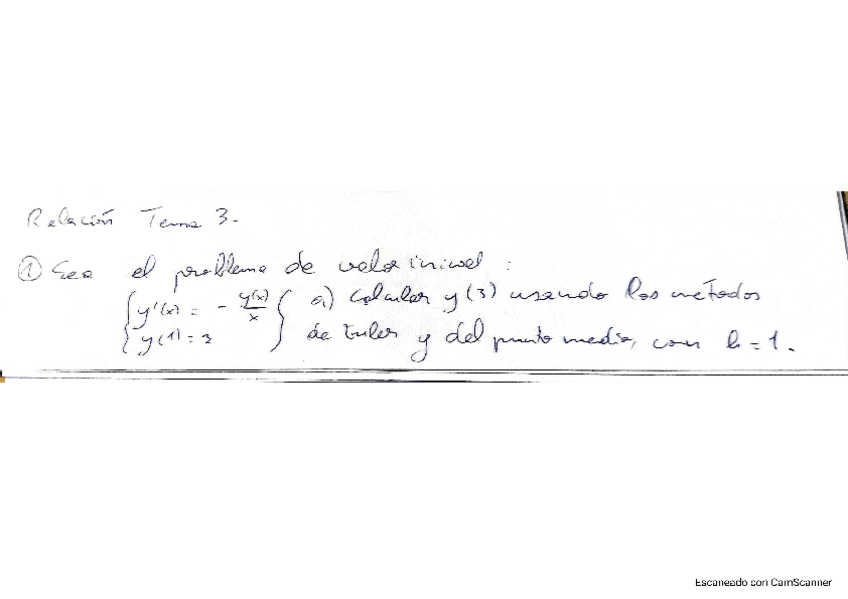 Relación Tema 3.-
① Sea el problema de valor inicial :
{ y'(x) = - y(x)/x } a) Calcular y(3) usando los métodos
{ y(1) = 3 } de Euler y del punto medio, con h = 1.
Escaneado con CamScanner